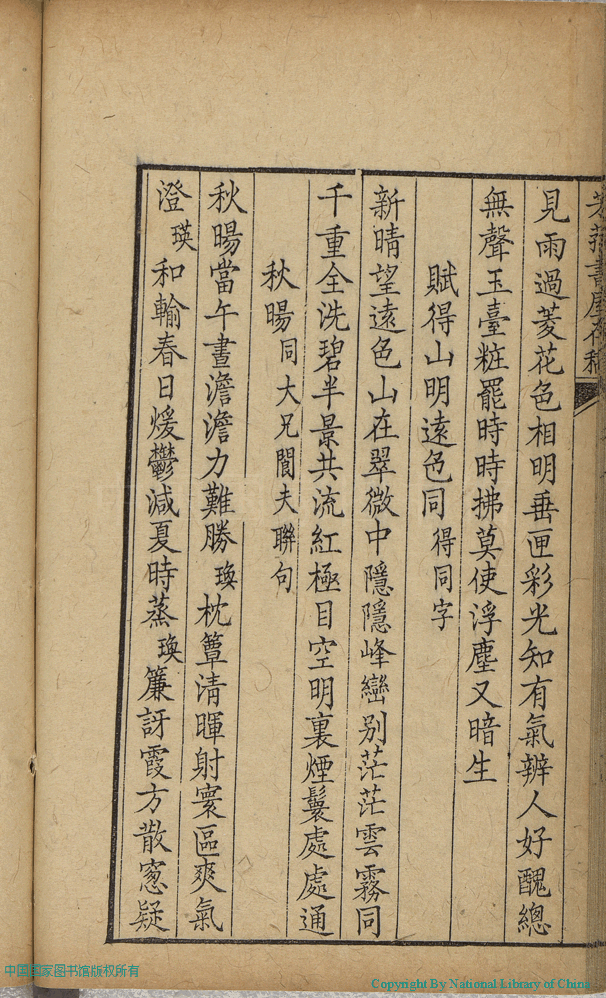 見雨過菱花色相明垂匣彩光知有氣辨人好醜總
無聲玉臺粧罷時時拂莫使浮塵又暗生
賦得山明遠色同 得同字
新晴望遠色山在翠微中隱隱峰巒別茫茫雲霧同
千重全洗碧半景共流紅極目空明裏煙鬟處處通
秋暘 同大兄閬夫聯句
秋暘當午晝澹澹力難勝 瑛 枕簟清暉射寰區爽氣
澄 瑛 和輸春日煖鬱減夏時蒸 瑛 簾訝霞方散窻疑
中国国家图书馆版权所有
Copyright By National Library of China